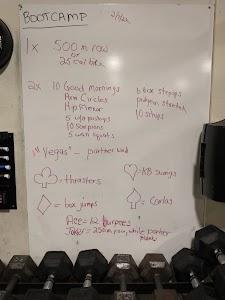 BOOTCAMP
1x 500m row
or
25 cal bike
2x 10 Good Mornings
Arm Circles
Hip Flexor
5 up/down
10 Scorpions
5 wall squats
6 Box step ups
10 situps
"Vegas" - partner wod
= thrusters
= KB swings
= box jumps
Ace = 12 burpees
Joker = 250m row, while partner